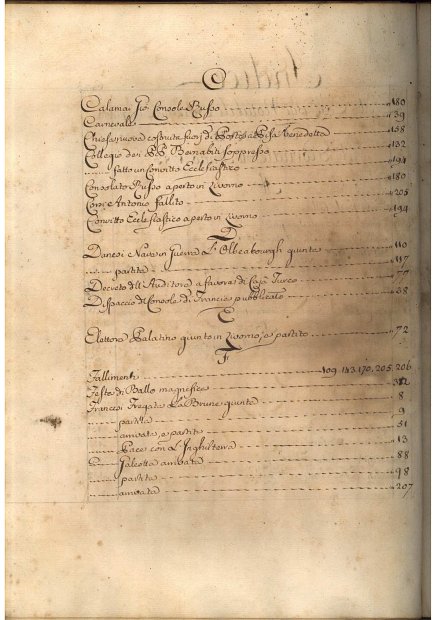 C
Calamai Gio. Console Russo 180
Carnevale 39
Chiesa nuova costruita fuori di Porta a Pisa benedetta 158
Collegio dei PP. Bernabiti soppresso 132
fatto un Convitto Ecclesiastico 194
Consolato Russo aperto in Livorno 180
Conti Antonio fallito 205
Convitto Ecclesiastico aperto in Livorno 194
D
Danesi Nave in Guerra giunta 110
partita 117
Decreto dell Auditore a favore di Turco 77
Dispaccio del Console di Francia pubblicato 38
E
Elettore Palatino giunto in Livorno, e partito 72
F
Fallimenti 109. 143. 170. 205. 206
Feste di Ballo magnifice
Francesi Fregata La Brune giunta 8
partita 9
arrivata, e partita 51
Pace con L'Inghilterra 13
Galeotta arrivata 88
partita 98
arrivata 207